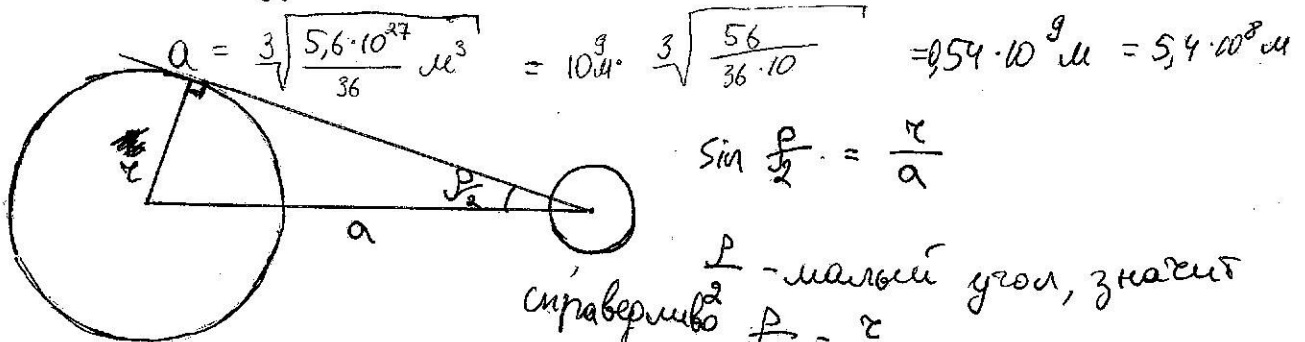 a = ∛(5,6·10²⁷/36 м³) = 10⁹м· ∛(56/(36·10)) = 0,54·10⁹ м = 5,4·10⁸ м
r
ρ/2
a
Sin ρ/2 = r/a
ρ/2 - малый угол, значит
справедливо ρ/2 = r